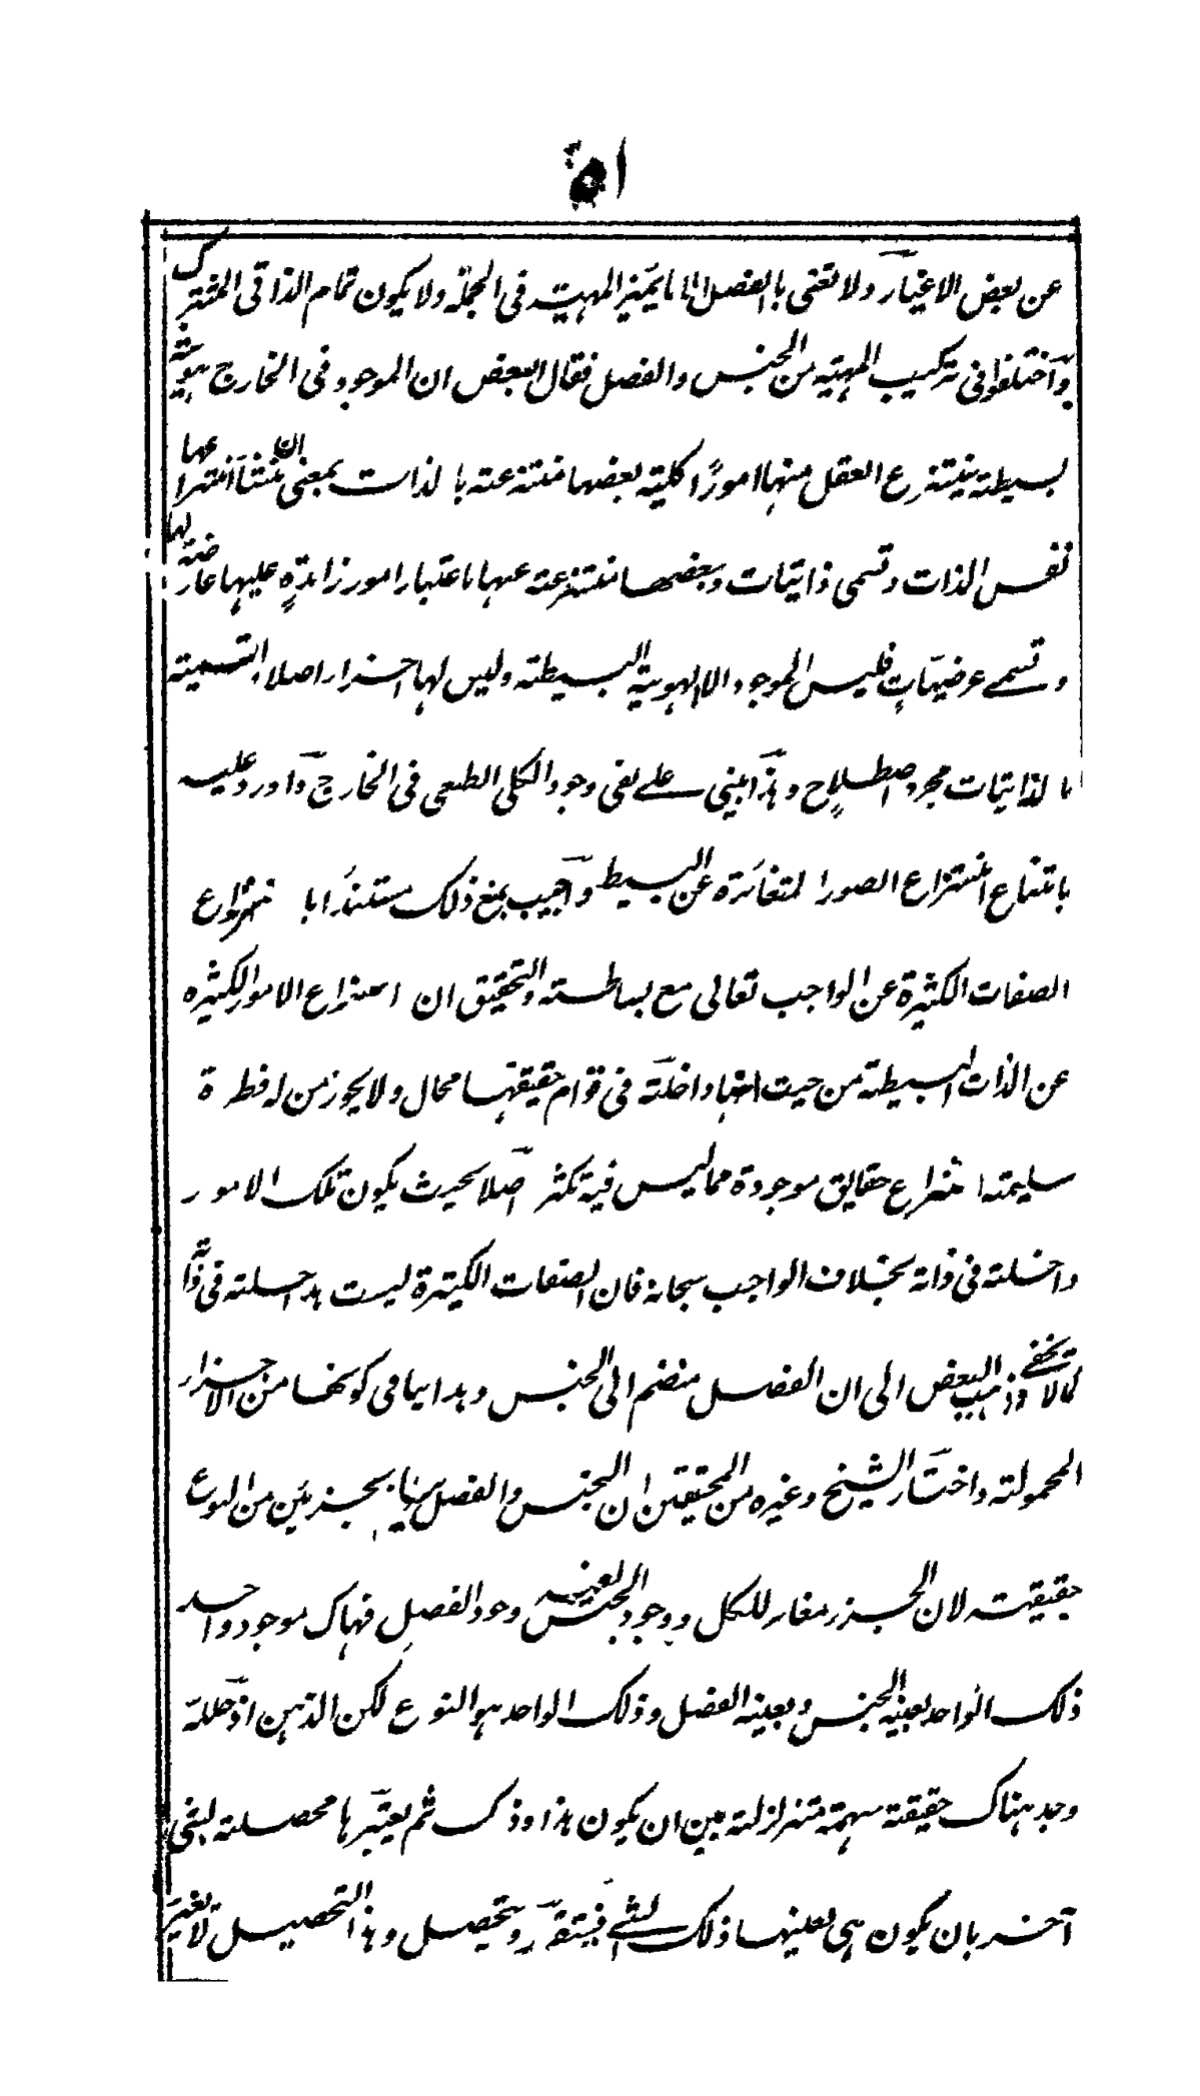 ٥١
عن بعض الاغيار ولا نعنى بالفصل الا ما يميز المهية فى الجملة ولا يكون تمام الذاتى المشترك
واختلفوا فى تركيب المهية من الجنس والفصل فقال البعض ان الموجود فى الخارج هوية
بسيطة ينتزع العقل منها امورًا كلية بعضها منتزعة بالذات بمعنى ان منشأ انتزاعها
نفس الذات وتسمى ذاتيات وبعضها منتزعة عنها باعتبار امور زائدةٍ عليها عارضة لها
وتسمے عرضيات فليس الموجود الا الهوية البسيطة وليس لها اجزاء اصلا انما التسمية
بالذاتيات مجرد اصطلاح وهذا مبنى علے نفى وجود الكلى الطبعى فى الخارج واورد عليه
بامتناع انتزاع الصور المتغائرة عن البسيط واجيب بمنع ذلك مستندًا بانتزاع
الصفات الكثيرة عن الواجب تعالى مع بساطته والتحقيق ان انتزاع الامور الكثيره
عن الذات البسيطة من حيث انها داخلة فى قوام حقيقتها محال ولا يجوز من له فطرة
سليمة انتزاع حقايق موجودة مما ليس فيه تكثر اصلا بحيث يكون تلك الامور
داخلة فى ذاته بخلاف الواجب سبحانه فان الصفات الكثيرة ليست بداخلة فى ذاته
كما لا يخفے وذهب البعض الى ان الفصل منضم الى الجنس وهذا ينافى كونها من الاجزاء
المحمولة واختار الشيخ وغيره من المحققين ان الجنس والفصل ليسا بجزئين من النوع
حقيقة لان الجزء مغاير للكل ووجود الجنس بعينه وجود الفصل فهناك موجود واحد
ذلك الواحد بعينه الجنس وبعينه الفصل وذلك الواحد هو النوع لكن الذهن اذ حلله
وجد هناك حقيقة مبهمة متزلزلة بين ان يكون هذا وذك ثم يعتبرها محصلة لشئ
آخر بان يكون هى بعينها ذلك الشے فيتقرر ويتحصل وهذا التحصيل لا يغير